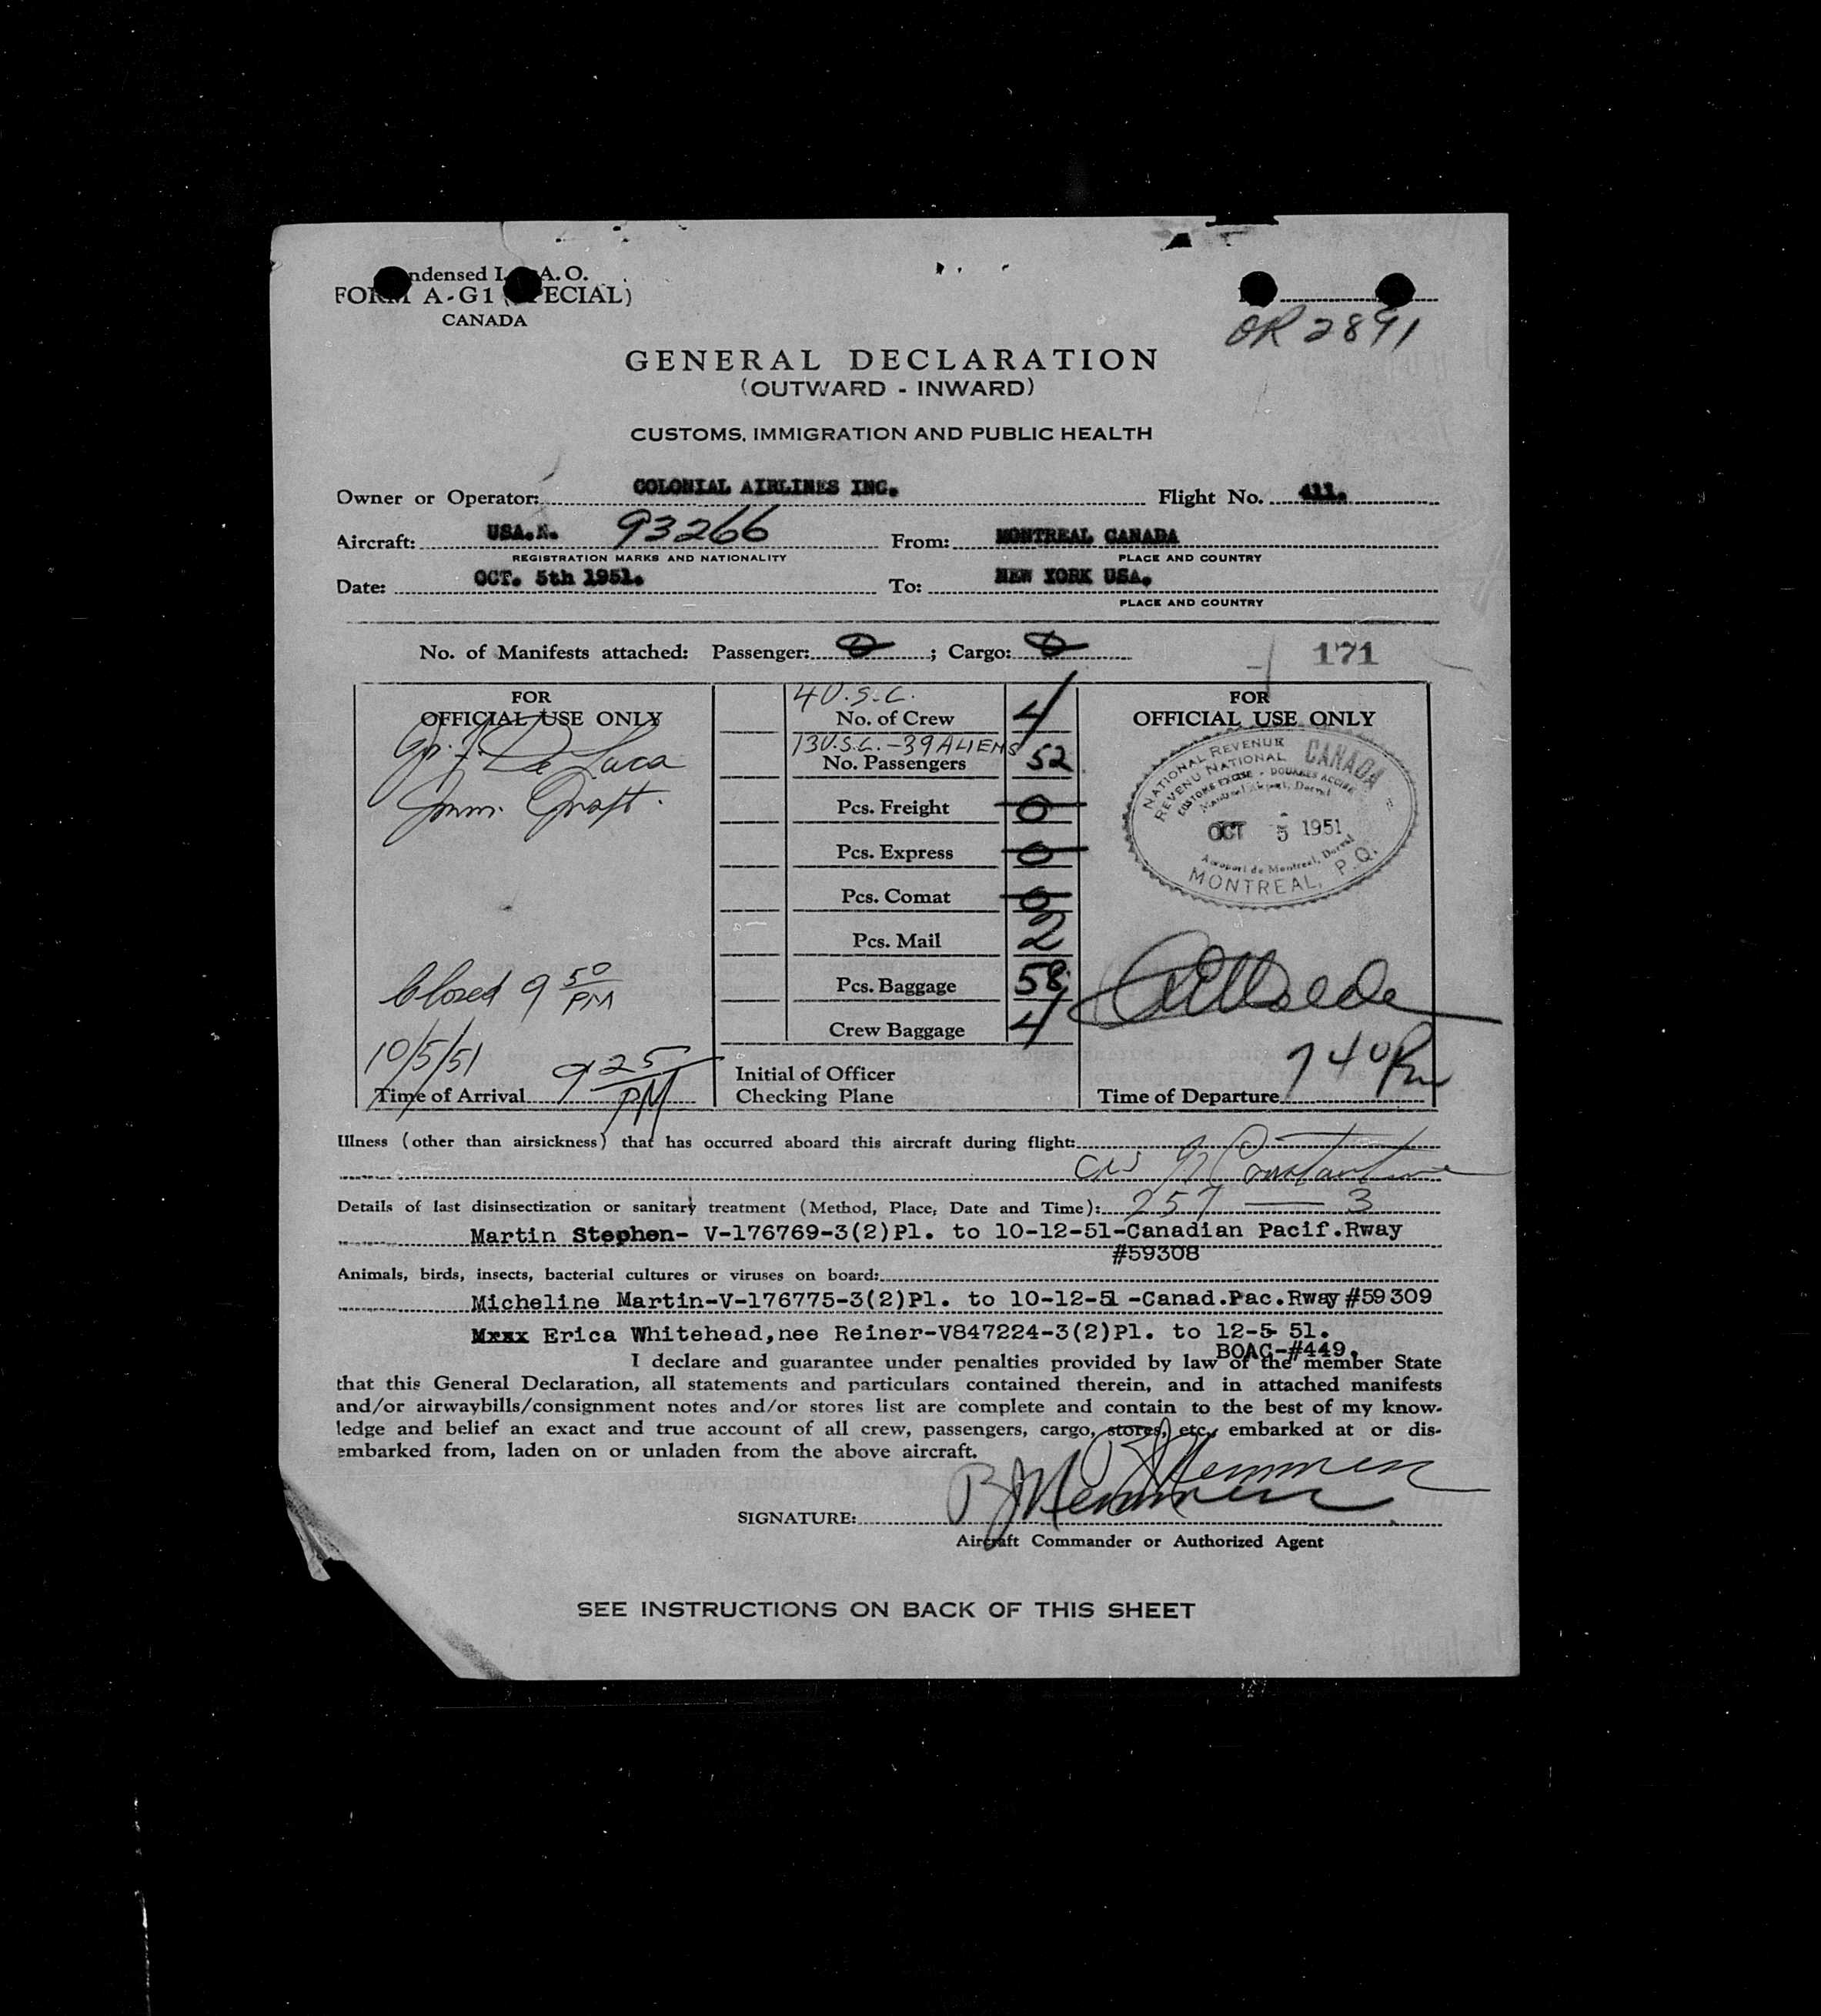 ndensed I. A. O.
FORM A-G1 (SPECIAL)
CANADA
OR 2891
GENERAL DECLARATION
(OUTWARD - INWARD)
CUSTOMS, IMMIGRATION AND PUBLIC HEALTH
Owner or Operator: COLONIAL AIRLINES INC. Flight No. 411.
Aircraft: USA.N. 93266 From: MONTREAL CANADA
REGISTRATION MARKS AND NATIONALITY PLACE AND COUNTRY
Date: OCT. 5th 1951. To: NEW YORK USA.
PLACE AND COUNTRY
No. of Manifests attached: Passenger: 0 ; Cargo: 0
171
FOR
OFFICIAL USE ONLY
De Luca
Closed 9 50 PM
10/5/51
Time of Arrival 9 25 PM
4 U.S.C.
No. of Crew 4
13 U.S.C. - 39 ALIENS
No. Passengers 52
Pcs. Freight 0
Pcs. Express 0
Pcs. Comat 0
Pcs. Mail 2
Pcs. Baggage 58
Crew Baggage 4
Initial of Officer
Checking Plane
FOR
OFFICIAL USE ONLY
NATIONAL REVENUE CANADA
REVENU NATIONAL
CUSTOMS EXCISE - DOUANES ACCISE
Montreal Airport, Dorval
OCT 5 1951
Aeroport de Montreal, Dorval
MONTREAL, P.Q.
Time of Departure 7 40 Pm
Illness (other than airsickness) that has occurred aboard this aircraft during flight:
Constantine
Details of last disinsectization or sanitary treatment (Method, Place, Date and Time): 257 — 3
Martin Stephen- V-176769-3(2)Pl. to 10-12-51-Canadian Pacif.Rway
#59308
Animals, birds, insects, bacterial cultures or viruses on board:
Micheline Martin-V-176775-3(2)Pl. to 10-12-51 -Canad.Pac.Rway #59309
Erica Whitehead,nee Reiner-V847224-3(2)Pl. to 12-5- 51.
BOAC-#449.
I declare and guarantee under penalties provided by law of the member State
that this General Declaration, all statements and particulars contained therein, and in attached manifests
and/or airwaybills/consignment notes and/or stores list are complete and contain to the best of my know-
ledge and belief an exact and true account of all crew, passengers, cargo, stores, etc., embarked at or dis-
embarked from, laden on or unladen from the above aircraft.
SIGNATURE:
Aircraft Commander or Authorized Agent
SEE INSTRUCTIONS ON BACK OF THIS SHEET